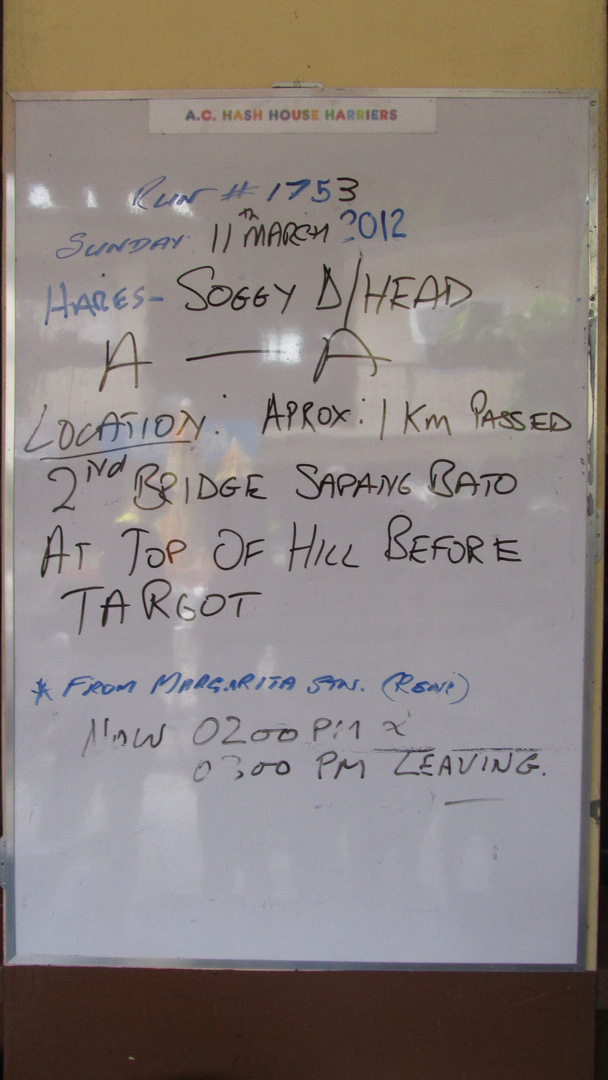 A.C. HASH HOUSE HARRIERS
RUN # 1753
SUNDAY 11TH MARCH 2012
HARES- SOGGY D/HEAD
A — A
LOCATION: APROX: 1 KM PASSED
2nd BRIDGE SAPANG BATO
AT TOP OF HILL BEFORE
TARGOT
* FROM MARGARITA STN. (RENE)
NOW 0200 PM &
0300 PM LEAVING.